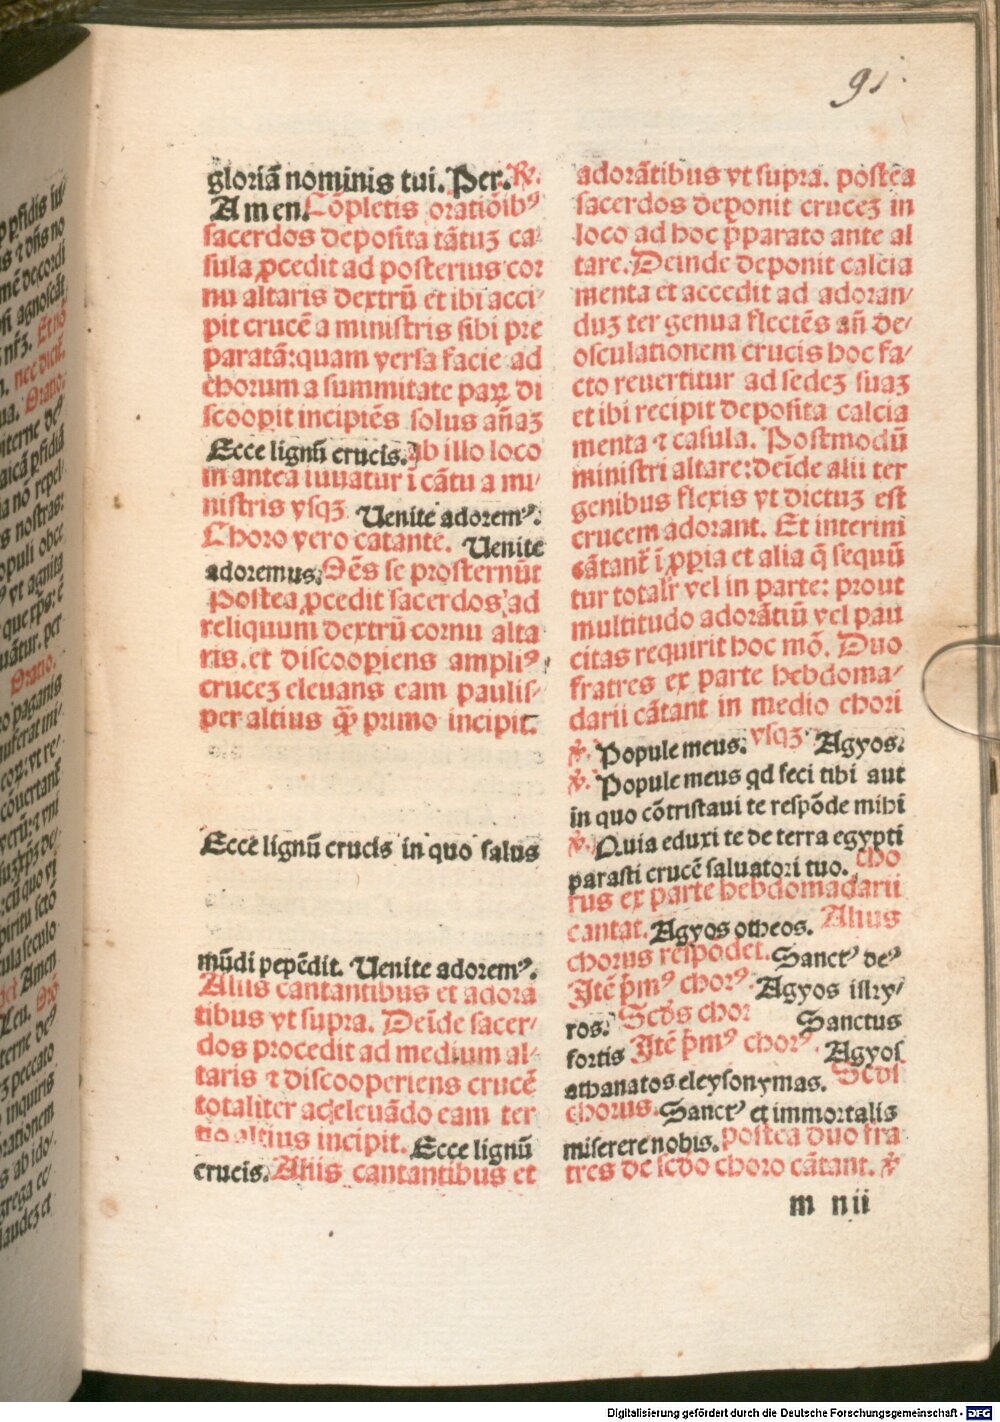 91
gloriã nominis tui. Per. ℟.
Amen. Cõpletis oratiõibꝰ
sacerdos deposita tãtuꝫ ca
sula ꝓcedit ad posterius cor
nu altaris dextrũ et ibi acci
pit crucẽ a ministris sibi pre
paratã: quam versa facie ad
chorum a summitate paꝝ di
scoopit incipiẽs solus añaꝫ
Ecce lignũ crucis. Ab illo loco
in antea iuuatur ĩ cãtu a mi
nistris vsqꝫ Uenite adoremꝰ.
Choro vero cãtante. Uenite
adoremus. Oẽs se prosternũt
Postea ꝓcedit sacerdos ad
reliquum dextrũ cornu alta
ris. et discoopiens ampliꝰ
cruceꝫ eleuans eam paulis/
per altius qͣꝫ primo incipit.
Ecce lignũ crucis in quo salus
mũdi pepẽdit. Uenite adoremꝰ.
Aliis cantantibus et adorã
tibus vt supra. Deĩde sacer/
dos procedit ad medium al/
taris ⁊ discooperiens crucẽ
totaliter ac eleuãdo eam ter
tio altius incipit. Ecce lignũ
crucis. Aliis cantantibus et
adorãtibus vt supra. postea
sacerdos deponit cruceꝫ in
loco ad hoc p̃parato ante al
tare. Deinde deponit calcia
menta et accedit ad adoran/
duꝫ ter genua flectẽs añ de/
osculationem crucis hoc fa/
cto reuertitur ad sedeꝫ suaꝫ
et ibi recipit deposita calcia
menta ⁊ casula. Postmodũ
ministri altare: deĩde alii ter
genibus flexis vt dictuꝫ est
crucem adorant. Et interim
cãtant̃ ĩꝓpria et alia q̃ sequũ
tur totalr̃ vel in parte: prout
multitudo adorãtiũ vel pau
citas requirit hoc mõ. Duo
fratres ex parte hebdoma/
darii cãtant in medio chori
℣. Popule meus. vsqꝫ Agyos.
℣. Popule meus qd feci tibi aut
in quo cõtristaui te respõde mihi
℣. Quia eduxi te de terra egypti
parasti crucẽ saluatori tuo. cho
rus ex parte hebdomadarii
cantat. Agyos otheos. Alius
chorus respõdet. Sanctꝰ deꝰ
Itẽ p̃mꝰ chorꝰ. Agyos iskry/
ros. Scd̃s chor Sanctus
fortis Itẽ p̃mꝰ chorꝰ. Agyos
athanatos eleysonymas. Scd̃s
chorus. Sanctꝰ et immortalis
miserere nobis. postea duo fra
tres de scd̃o choro cãtant. ℣
m nii
Digitalisierung gefördert durch die Deutsche Forschungsgemeinschaft - DFG